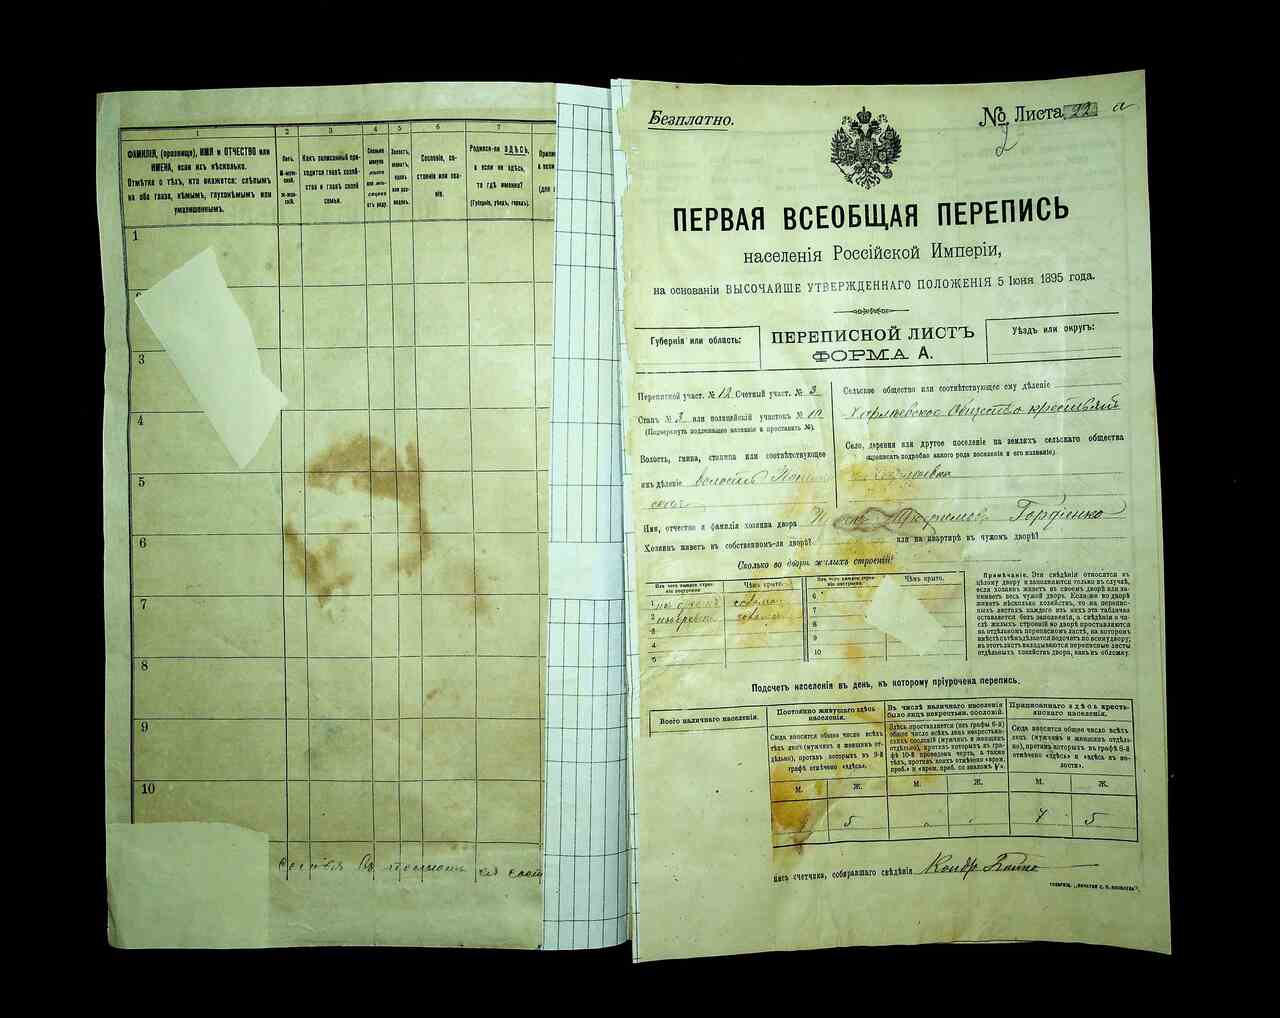 1 2 3 4 5 6 7
ФАМИЛІЯ, (прозвище), ИМЯ и ОТЧЕСТВО или
ИМЕНА, если ихъ нѣсколько.
Отмѣтка о тѣхъ, кто окажется: слѣпымъ
на оба глаза, нѣмымъ, глухонѣмымъ или
умалишеннымъ.
Полъ.
М-муж-
ской.
Ж-жен-
скій.
Какъ записанный при-
ходится главѣ хозяй-
ства и главѣ своей
семьи.
Сколько
минуло
лѣтъ
или мѣ-
сяцевъ
отъ роду.
Холостъ,
женатъ,
вдовъ
или раз-
веденъ.
Сословіе, со-
стояніе или зва-
ніе.
Родился-ли ЗДѢСЬ,
а если не здѣсь,
то гдѣ именно?
(Губернія, уѣздъ, городъ).
1
3
4
5
6
7
8
9
10
Безплатно.
№ Листа 22 а
2
ПЕРВАЯ ВСЕОБЩАЯ ПЕРЕПИСЬ
населенія Россійской Имперіи,
на основаніи ВЫСОЧАЙШЕ УТВЕРЖДЕННАГО ПОЛОЖЕНІЯ 5 Іюня 1895 года.
Губернія или область:
ПЕРЕПИСНОЙ ЛИСТЪ
ФОРМА А.
Уѣздъ или округъ:
Переписной участ. № 12 Счетный участ. № 3
Станъ № 3 или полицейскій участокъ №
(Подчеркнуть подлежащее названіе и проставить №).
Волость, гмина, станица или соотвѣтствующее
имъ дѣленіе волость
Сельское общество или соотвѣтствующее ему дѣленіе
Общество крестьянъ
Село, деревня или другое поселеніе на земляхъ сельскаго общества
(прописать подробно какого рода поселеніе и его названіе).
Имя, отчество и фамилія хозяина двора Трофимовъ Гордіенко
Хозяинъ живетъ въ собственномъ-ли дворѣ? или на квартирѣ въ чужомъ дворѣ?
Сколько во дворѣ жилыхъ строеній?
Изъ чего каждое строе-
ніе построено Чѣмъ крыто.
Изъ чего каждое строе-
ніе построено Чѣмъ крыто.
1 солом
2
3
4
5
6
7
8
9
10
Примѣчаніе. Эти свѣдѣнія относятся къ
цѣлому двору и заполняются только въ случаѣ,
если хозяинъ живетъ въ своемъ дворѣ или за-
нимаетъ весь чужой дворъ. Если же во дворѣ
живетъ нѣсколько хозяйствъ, то на перепис-
ныхъ листахъ каждаго изъ нихъ эта табличка
оставляется безъ заполненія, а свѣдѣнія о чи-
слѣ жилыхъ строеній во дворѣ проставляются
на отдѣльномъ переписномъ листѣ, на которомъ
вмѣстѣ съ тѣмъ дѣлается подсчетъ по всему двору;
въ этотъ листъ вкладываются переписные листы
отдѣльныхъ хозяйствъ двора, какъ въ обложку.
Подсчетъ населенія въ день, къ которому пріурочена перепись.
Всего наличнаго населенія.
Постоянно живущаго здѣсь
населенія.
Сюда вносится общее число всѣхъ
тѣхъ лицъ (мужчинъ и женщинъ от-
дѣльно), противъ которыхъ въ 9-й
графѣ отмѣчено «здѣсь».
Въ числѣ наличнаго населенія
было лицъ некрестьян. сословій.
Здѣсь проставляется (изъ графы 6-й)
общее число всѣхъ лицъ некрестьян-
скихъ сословій (мужчинъ и женщинъ
отдѣльно), противъ которыхъ въ гра-
фѣ 10-й проведена черта, а также
тѣхъ, противъ коихъ отмѣчено «врем.
преб.» и «врем. преб. со знакомъ
Приписаннаго здѣсь кресть-
янскаго населенія.
Сюда вносится общее число всѣхъ
лицъ (мужчинъ и женщинъ отдѣль-
но), противъ которыхъ въ графѣ 8-й
отмѣчено «здѣсь» и «здѣсь въ во-
лости».
М. Ж. М. Ж. М. Ж.
4 5 4 5
пись счетчика, собиравшаго свѣдѣнія Кондр.